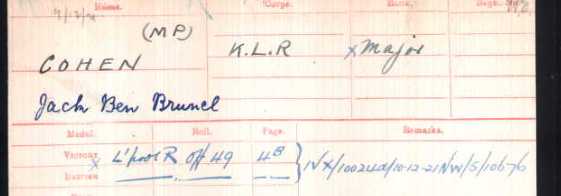 Name. Corps. Rank. Regtl. No.
9/12/21
(MP)
COHEN K.L.R x Major
Jack Ben Brunel
Medal. Roll. Page. Remarks.
VICTORY x L'pool R Off 49 4B IVX/10024d/10-12-21 NW/5/10676
BRITISH